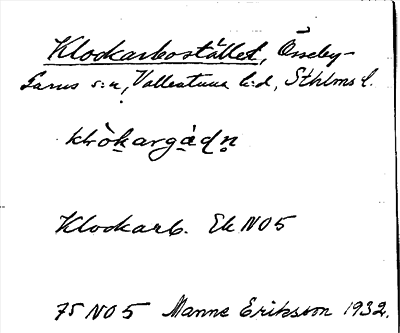 Klockarbostället, Össeby-
Garns s:n, Vallentuna h:d, Sthlms l.
klòkargàdn
Klockarb. Ek NO5
75 NO 5 Manne Eriksson 1932.